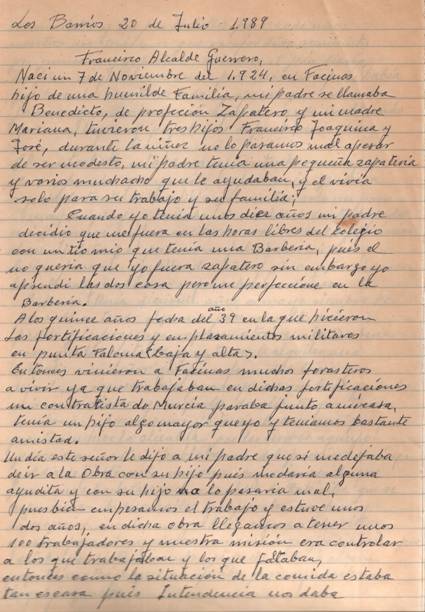 Los Barrios 20 de Julio - 1.989
Francisco Alcalde Guerrero,
Naci un 7 de Noviembre del 1.924, en Facinas
hijo de una humilde Familia, mi padre se llamaba
Benedicto, de profeción Zapatero y mi madre
Mariana, tuvieron tres hijos Francisco Joaquina y
José, durante la niñez no lo pasamos mal apesar
de ser modesto, mi padre tenia una pequeña zapateria
y varios muchacho que le ayudaban, y el vivia
solo para su trabajo y su familia;
Cuando yo tenia unos diez años mi padre
decidio que me fuera en las horas libres del colegio
con un tio mio que tenia una Barberia, pues el
no queria que yo fuera zapatero sin embargo yo
aprendi las dos cosa pero me perfeccione en la
Barberia.
A los quince años fecha del año 39 en la que hicieron
las fortificaciones y emplazamientos militares
en punta Paloma <baja y alta>.
Entonces vinieron a Facinas muchos forasteros
a vivir ya que trabajaban en dichas fortificaciones
un contratista de Murcia paraba junto a mi casa,
tenia un hijo algo mayor que yo y teniamos bastante
amistad.
Un dia este señor le dijo a mi padre que si me dejaba
de ir a la Obra con su hijo pués me daria alguna
ayudita y con su hijo no lo pasaria mal,
pues bien empesamos el trabajo y estuve unos
dos años, en dicha obra llegamos a tener unos
100 trabajadores y nuestra misión era controlar
a los que trabajaban y los que faltaban,
entonces como la situación de la comida estaba
tan escasa pués Intendencia nos daba